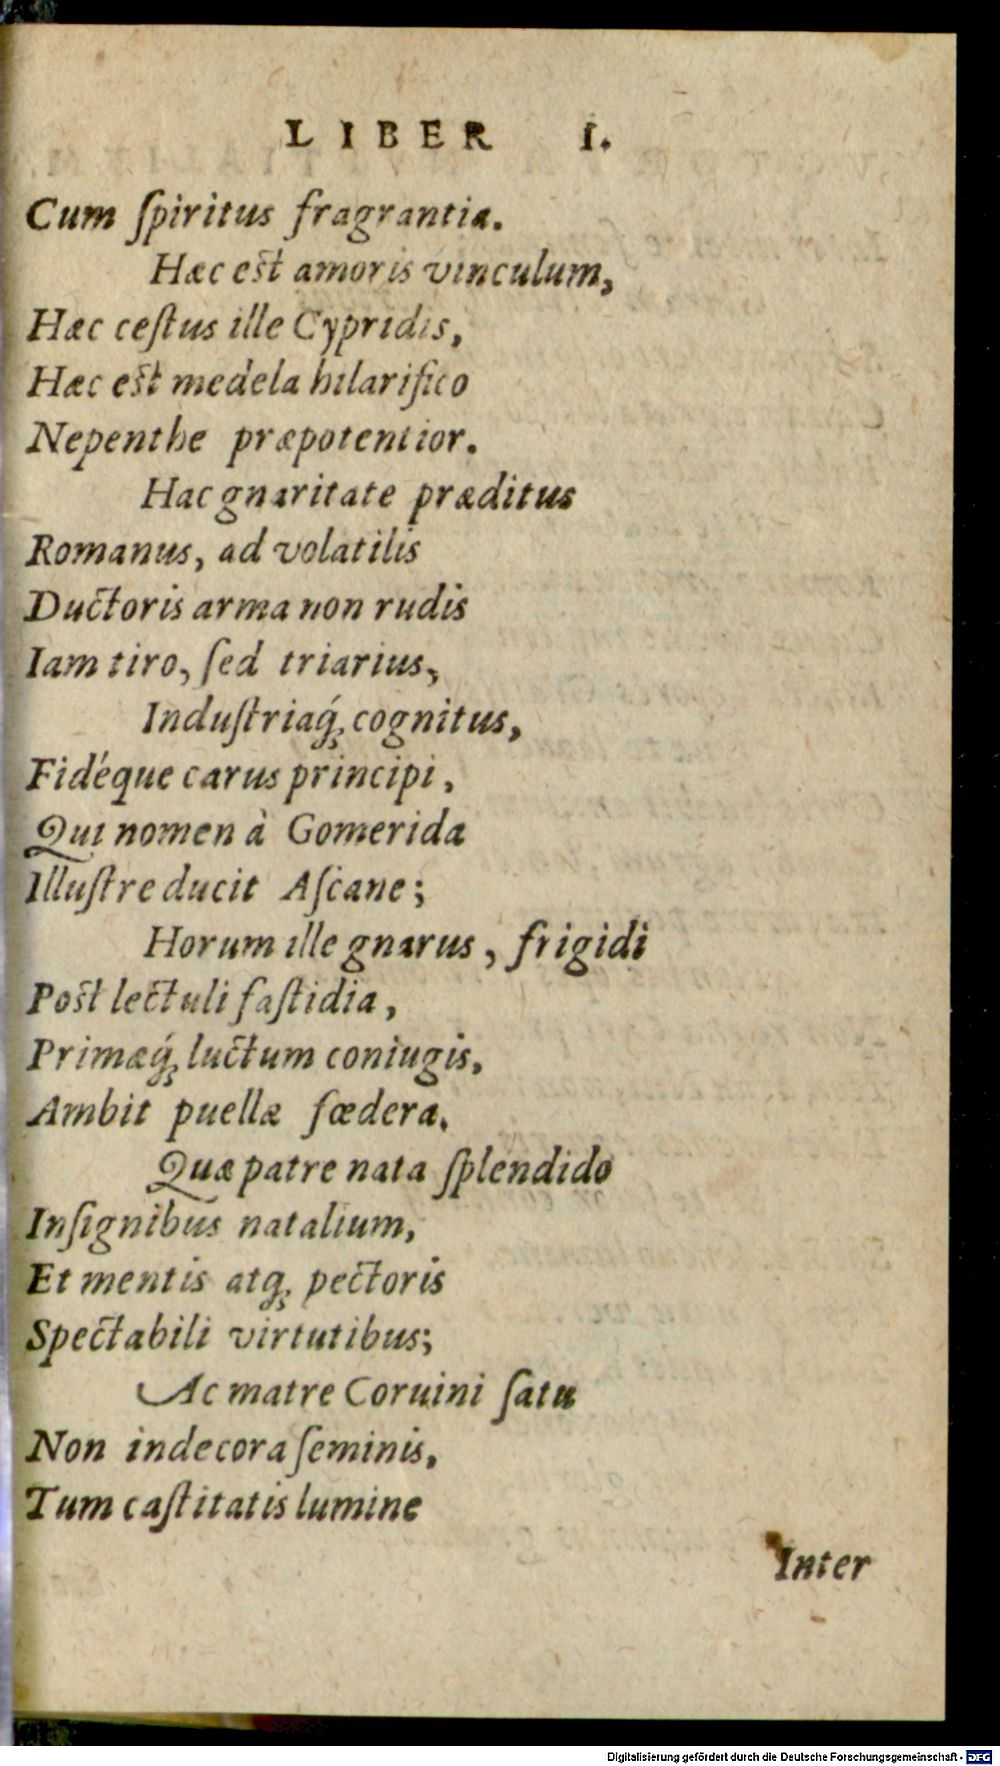 LIBER I.
Cum ſpiritus fragrantia.
Hæc eſt amoris vinculum,
Hæc ceſtus ille Cypridis,
Hæc eſt medela hilarifico
Nepenthe præpotentior.
Hac gnaritate præditus
Romanus, ad volatilis
Ductoris arma non rudis
Iam tiro, ſed triarius,
Induſtriaq́; cognitus,
Fidéque carus principi,
Qui nomen à Gomerida
Illuſtre ducit Aſcane;
Horum ille gnarus, frigidi
Poſt lectuli faſtidia,
Primæq́; luctum coniugis,
Ambit puellæ fœdera,
Quæ patre nata ſplendido
Inſignibus natalium,
Et mentis atq; pectoris
Spectabili virtutibus;
Ac matre Coruini ſatu
Non indecora ſeminis,
Tum caſtitatis lumine
Inter
Digitalisierung gefördert durch die Deutsche Forschungsgemeinschaft - DFG